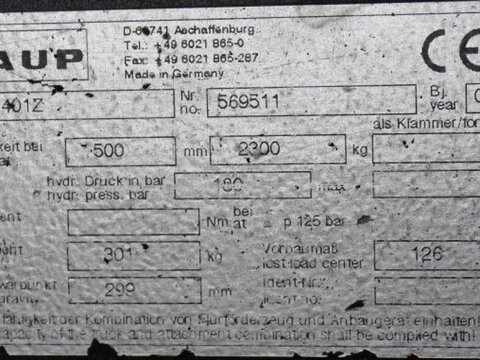 AUP
D-63741 Aschaffenburg
Tel.: +49 6021 865-0
Fax: +49 6021 865-287
Made in Germany
CE
401Z Nr. no. 569511 Bj. year 0
als Klammer/for
keit bei 500 mm 2300 kg
hydr. Druck in bar
hydr. press. bar 180 max
ent Nm bei at p 125 bar
ght 301 kg Vorbaumaß lost load center 126
werpunkt
gravity 299 mm Ident-Nr.
fähigkeit der Kombination von Flurförderzeug und Anbaugerät einhalten!
capacity of the truck and attachment combination shall be complied with!